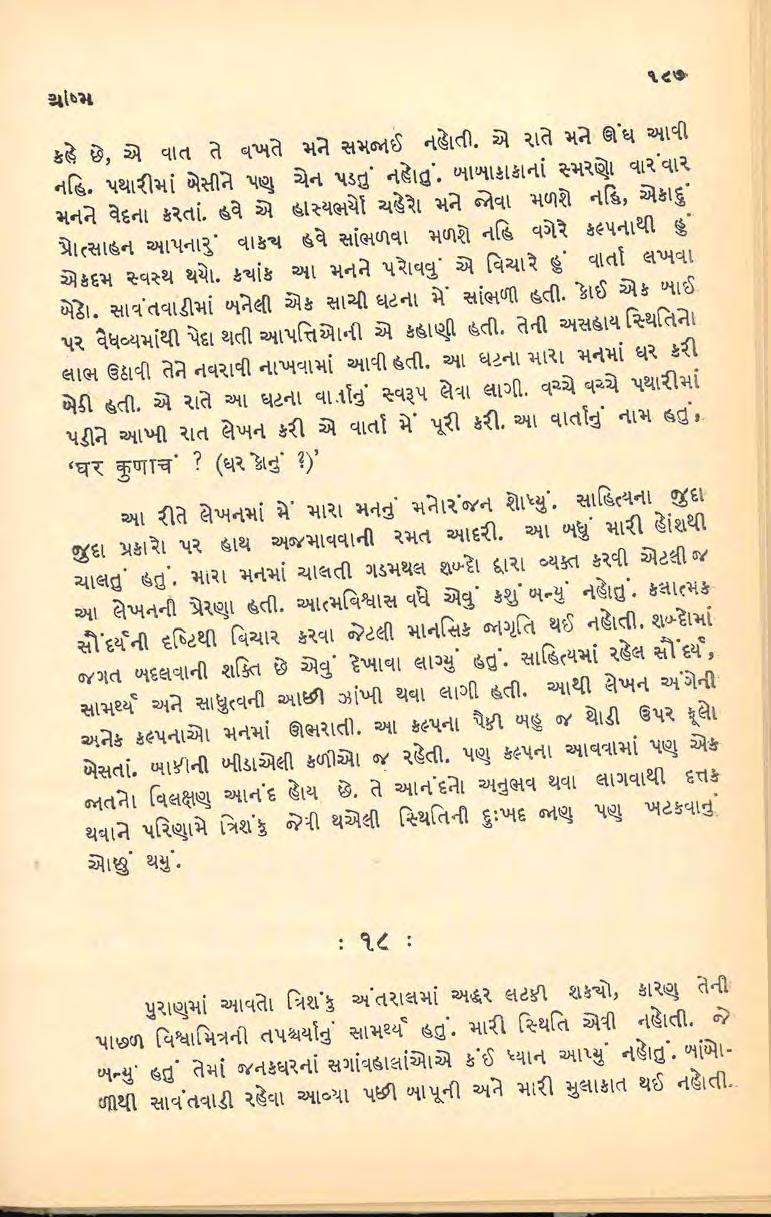 ૧૮૭
ગ્રીષ્મ
કહે છે, એ વાત તે વખતે મને સમજાઈ નહોતી. એ રાતે મને ઊંઘ આવી
નહિ. પથારીમાં બેસીને પણ ચેન પડતું નહોતું. બાબાકાકાનાં સ્મરણો વારંવાર
મનને વેદના કરતાં. હવે એ હાસ્યભર્યો ચહેરો મને જોવા મળશે નહિ, એકાદું
પ્રોત્સાહન આપનારું વાક્ય હવે સાંભળવા મળશે નહિ વગેરે કલ્પનાથી હું
એકદમ સ્વસ્થ થયો. કયાંક આ મનને પરોવવું એ વિચારે હું વાર્તા લખવા
બેઠો. સાવંતવાડીમાં બનેલી એક સાચી ઘટના મેં સાંભળી હતી. કોઈ એક બાઈ
પર વૈધવ્યમાંથી પેદા થતી આપત્તિઓની એ કહાણી હતી. તેની અસહાય સ્થિતિનો
લાભ ઉઠાવી તેને નવરાવી નાખવામાં આવી હતી. આ ઘટના મારા મનમાં ઘર કરી
બેઠી હતી. એ રાતે આ ઘટના વાર્તાનું સ્વરૂપ લેવા લાગી. વચ્ચે વચ્ચે પથારીમાં
પડીને આખી રાત લેખન કરી એ વાર્તા મેં પૂરી કરી. આ વાર્તાનું નામ હતું,
‘ઘર कुणाचं ? (ઘર કોનું ?)’
આ રીતે લેખનમાં મેં મારા મનનું મનોરંજન શોધ્યું. સાહિત્યના જુદા
જુદા પ્રકારો પર હાથ અજમાવવાની રમત આદરી. આ બધું મારી હોંશથી
ચાલતું હતું. મારા મનમાં ચાલતી ગડમથલ શબ્દો દ્વારા વ્યક્ત કરવી એટલી જ
આ લેખનની પ્રેરણા હતી. આત્મવિશ્વાસ વધે એવું કશું બન્યું નહોતું. કલાત્મક
સૌંદર્યની દષ્ટિથી વિચાર કરવા જેટલી માનસિક જાગૃતિ થઈ નહોતી. શબ્દોમાં
જગત બદલવાની શક્તિ છે એવું દેખાવા લાગ્યું હતું. સાહિત્યમાં રહેલ સૌંદર્ય,
સામર્થ્ય અને સાધુત્વની આછી ઝાંખી થવા લાગી હતી. આથી લેખન અંગેની
અનેક કલ્પનાઓ મનમાં ઊભરાતી. આ કલ્પના પૈકી બહુ જ થોડી ઉપર ફૂલો
બેસતાં. બાકીની બીડાએલી કળીઓ જ રહેતી. પણ કલ્પના આવવામાં પણ એક
જાતનો વિલક્ષણ આનંદ હોય છે. તે આનંદનો અનુભવ થવા લાગવાથી દત્તક
થવાને પરિણામે ત્રિશંકુ જેવી થએલી સ્થિતિની દુઃખદ જાણ પણ ખટકવાનું
ઓછું થયું.
: ૧૮ :
પુરાણમાં આવતો ત્રિશંકુ અંતરાલમાં અદ્ધર લટકી શક્યો, કારણ તેની
પાછળ વિશ્વામિત્રની તપશ્ચર્યાનું સામર્થ્ય હતું. મારી સ્થિતિ એવી નહોતી. જે
બન્યું હતું તેમાં જનકઘરનાં સગાંવહાલાંઓએ કંઈ ધ્યાન આપ્યું નહોતું. બાંબો-
ળીથી સાવંતવાડી રહેવા આવ્યા પછી બાપૂની અને મારી મુલાકાત થઈ નહોતી.